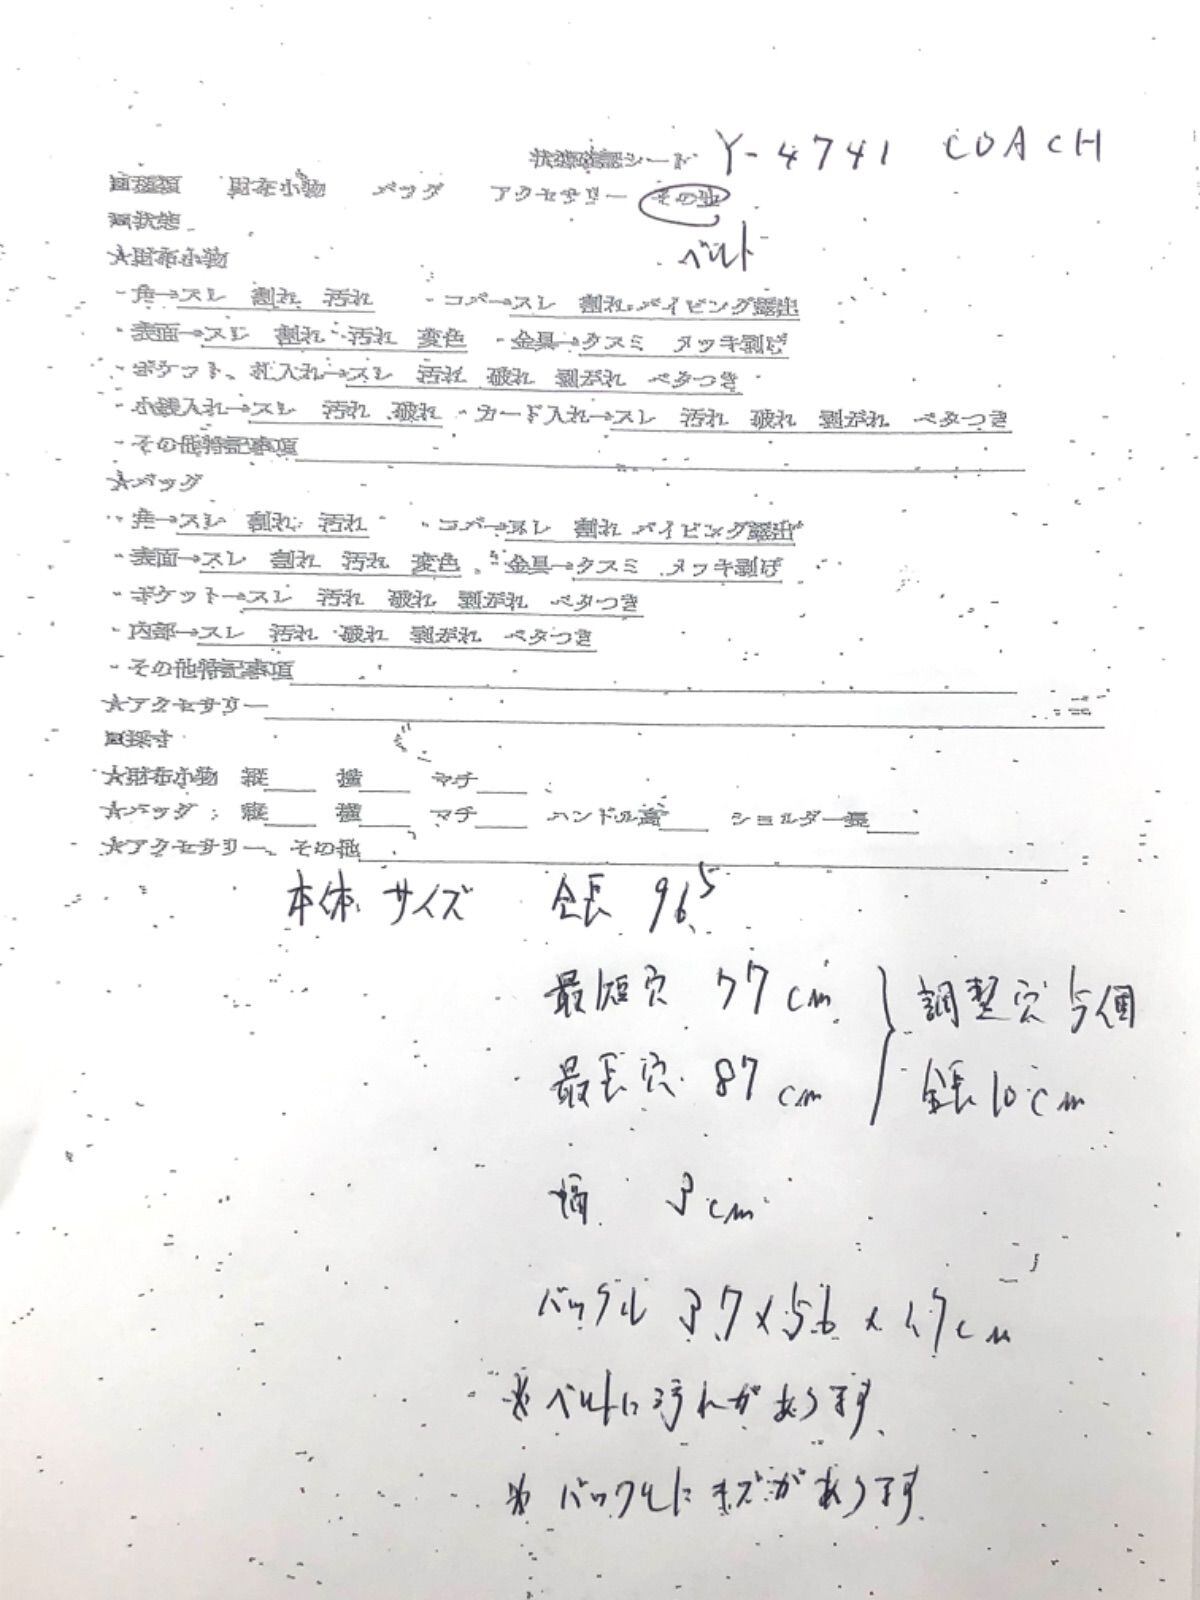 状態確認シート Y-4741 COACH
■種類 財布小物 バッグ アクセサリー その他
■状態 ベルト
★財布小物
・角→スレ 割れ 汚れ ・コバ→スレ 割れ パイピング露出
・表面→スレ 割れ 汚れ 変色 ・金具→クスミ メッキ剥げ
・ポケット、札入れ→スレ 汚れ 破れ 剥がれ ベタつき
・小銭入れ→スレ 汚れ 破れ ・カード入れ→スレ 汚れ 破れ 剥がれ ベタつき
・その他特記事項
★バッグ
・角→スレ 割れ 汚れ ・コバ→スレ 割れ パイピング露出
・表面→スレ 割れ 汚れ 変色 ・金具→クスミ メッキ剥げ
・ポケット→スレ 汚れ 破れ 剥がれ ベタつき
・内部→スレ 汚れ 破れ 剥がれ ベタつき
・その他特記事項
★アクセサリー
■採寸
★財布小物 縦 横 マチ
★バッグ 縦 横 マチ ハンドル高 ショルダー長
★アクセサリー、その他
本体サイズ 全長 96.5
最短穴 77cm 調整穴 5個
最長穴 87cm 全長10cm
幅 3cm
バックル 3.7×5.6×1.7cm
※ベルトに汚れがあります
※バックルにキズがあります